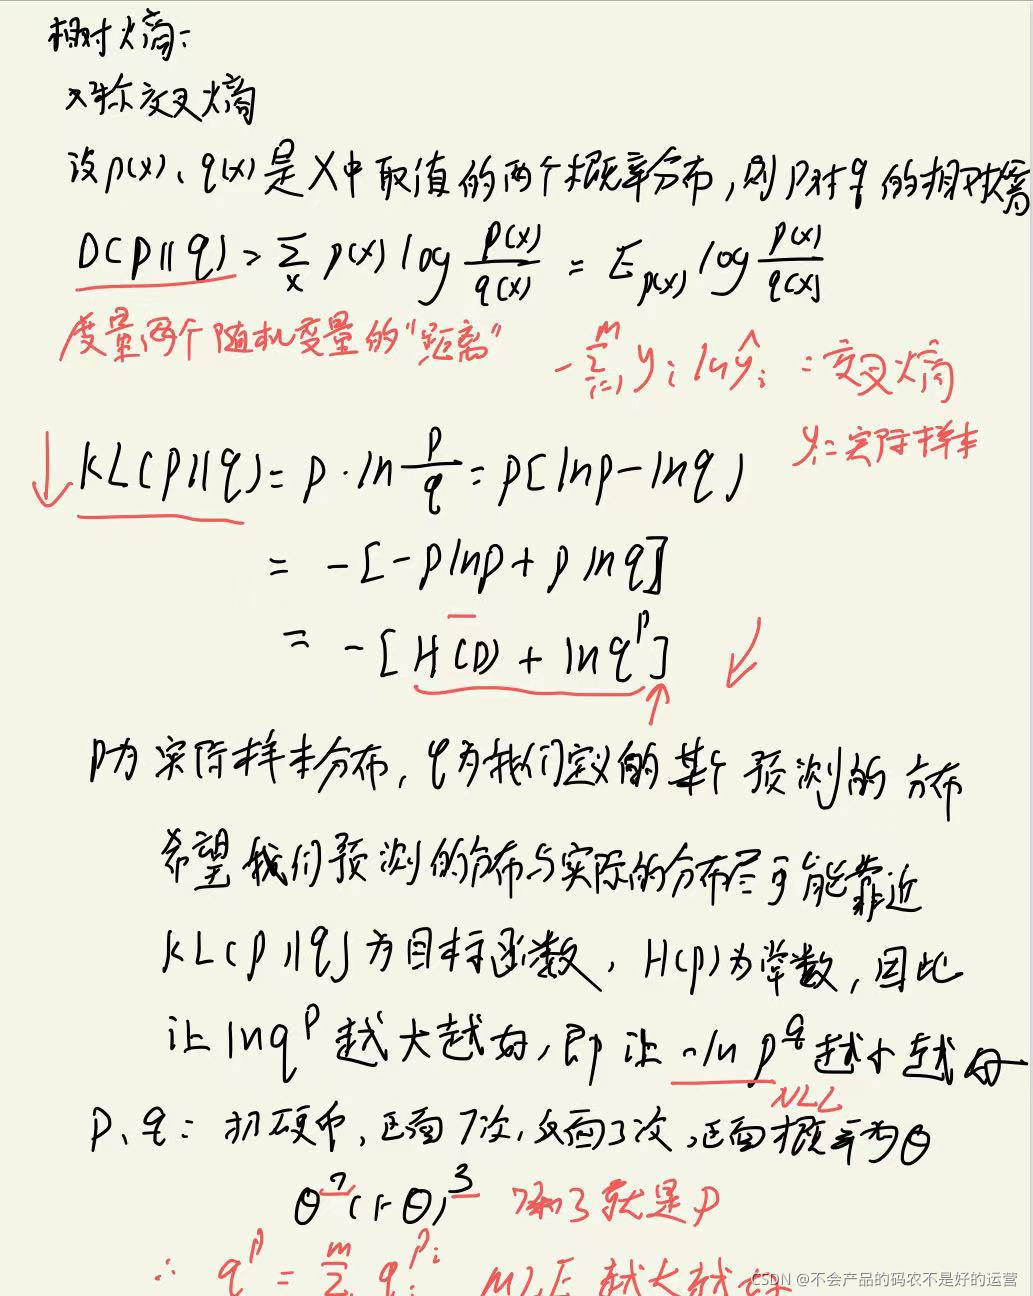 相对熵:
又称交叉熵
设p(x)、q(x)是X中取值的两个概率分布,则p对q的相对熵
D(p||q) = ∑_x p(x) log p(x)/q(x) = E_p(x) log p(x)/q(x)
度量两个随机变量的“距离”
-∑_{i=1}^{m} y_i ln ŷ_i : 交叉熵
y_i: 实际样本
KL(p||q) = p·ln p/q = p[lnp-lnq]
= -[-plnp+plnq]
= -[H(p)+lnq^p]
p为实际样本分布,q为我们定义的某个预测的分布
希望我们预测的分布与实际的分布尽可能靠近
KL(p||q)为目标函数,H(p)为常数,因此
让lnq^p越大越好,即让-lnp^q越小越好
NLL
p、q: 扔硬币,正面7次,反面3次,正面概率为θ
θ^7(1-θ)^3 7和3就是p
∴ q^p = ∑^m q_i^{p_i} MLE越大越好
CSDN @不会产品的码农不是好的运营